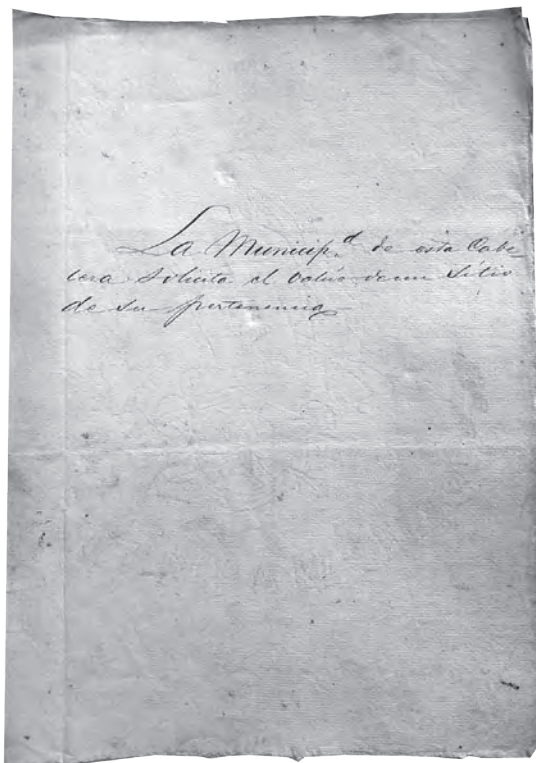 La Municip.d de esta Cabe
cera Solicita el valúo de un Sitio
de su pertenencia